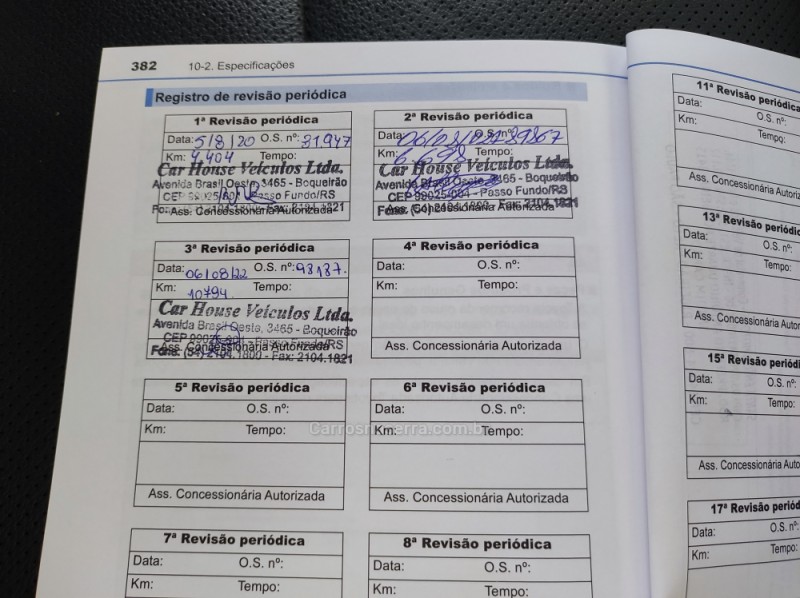 382 10-2. Especificações
Registro de revisão periódica
1ª Revisão periódica
Data: 5/8/20 O.S. nº: 31.947
Km: 4.404 Tempo:
Car House Veículos Ltda.
Avenida Brasil Oeste, 3465 - Boqueirão
Passo Fundo/RS
Ass. Concessionária Autorizada
2ª Revisão periódica
Data: O.S. nº:
Km: 6.698 Tempo:
Car House Veículos Ltda.
Avenida Brasil Oeste, 3465 - Boqueirão
CEP 99025/004 - Passo Fundo/RS
Ass. Concessionária Autorizada
Fone: (54) 2104.1800 - Fax: 2104.1821
3ª Revisão periódica
Data: 06/08/22 O.S. nº: 98187.
Km: 10794. Tempo:
Car House Veículos Ltda.
Avenida Brasil Oeste, 3465 - Boqueirão
CEP - Passo Fundo/RS
Ass. Concessionária Autorizada
Fone: (54) 2104.1800 - Fax: 2104.1821
4ª Revisão periódica
Data: O.S. nº:
Km: Tempo:
Ass. Concessionária Autorizada
5ª Revisão periódica
Data: O.S. nº:
Km: Tempo:
Ass. Concessionária Autorizada
6ª Revisão periódica
Data: O.S. nº:
Km: Tempo:
Ass. Concessionária Autorizada
7ª Revisão periódica
Data: O.S. nº:
Km: Tempo:
8ª Revisão periódica
Data: O.S. nº:
Km: Tempo:
11ª Revisão periódica
Data: O.S. nº:
Km: Tempo:
Ass. Concessionária
13ª Revisão periódica
Data: O.S. nº:
Km: Tempo:
Ass. Concessionária
15ª Revisão
Data: O.S. nº
Km: Tempo:
Ass. Concessionária
17ª Revisão
Data: O.S. nº
Km: Tempo: